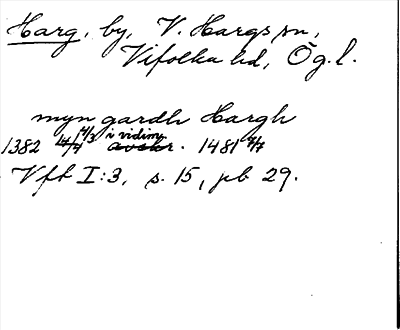 Harg, by, V. Hargs sn,
Vifolka hd, Ög.l.
myn gardh Hargh
1382 17/4 14/3 i vidim. avskr. 1481 7/7
Vfk I:3, s. 15, pb 29.